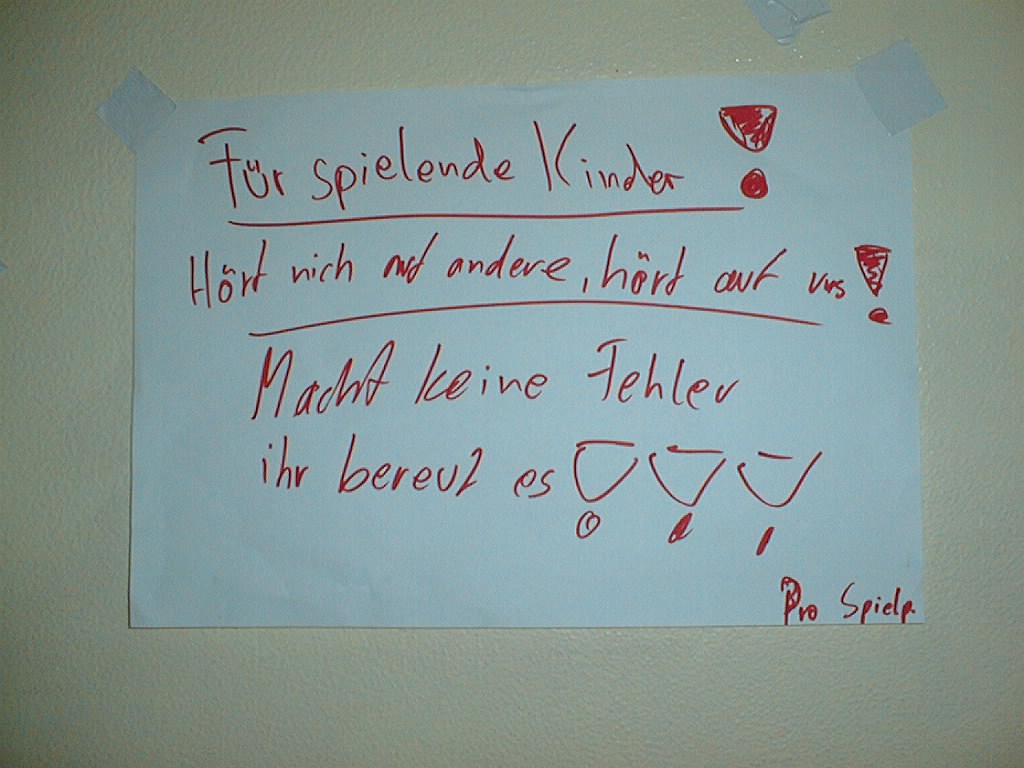 Für spielende Kinder!
Hört nich auf andere, hört auf uns!
Macht keine Fehler
ihr bereut es!!!
Pro Spielp.